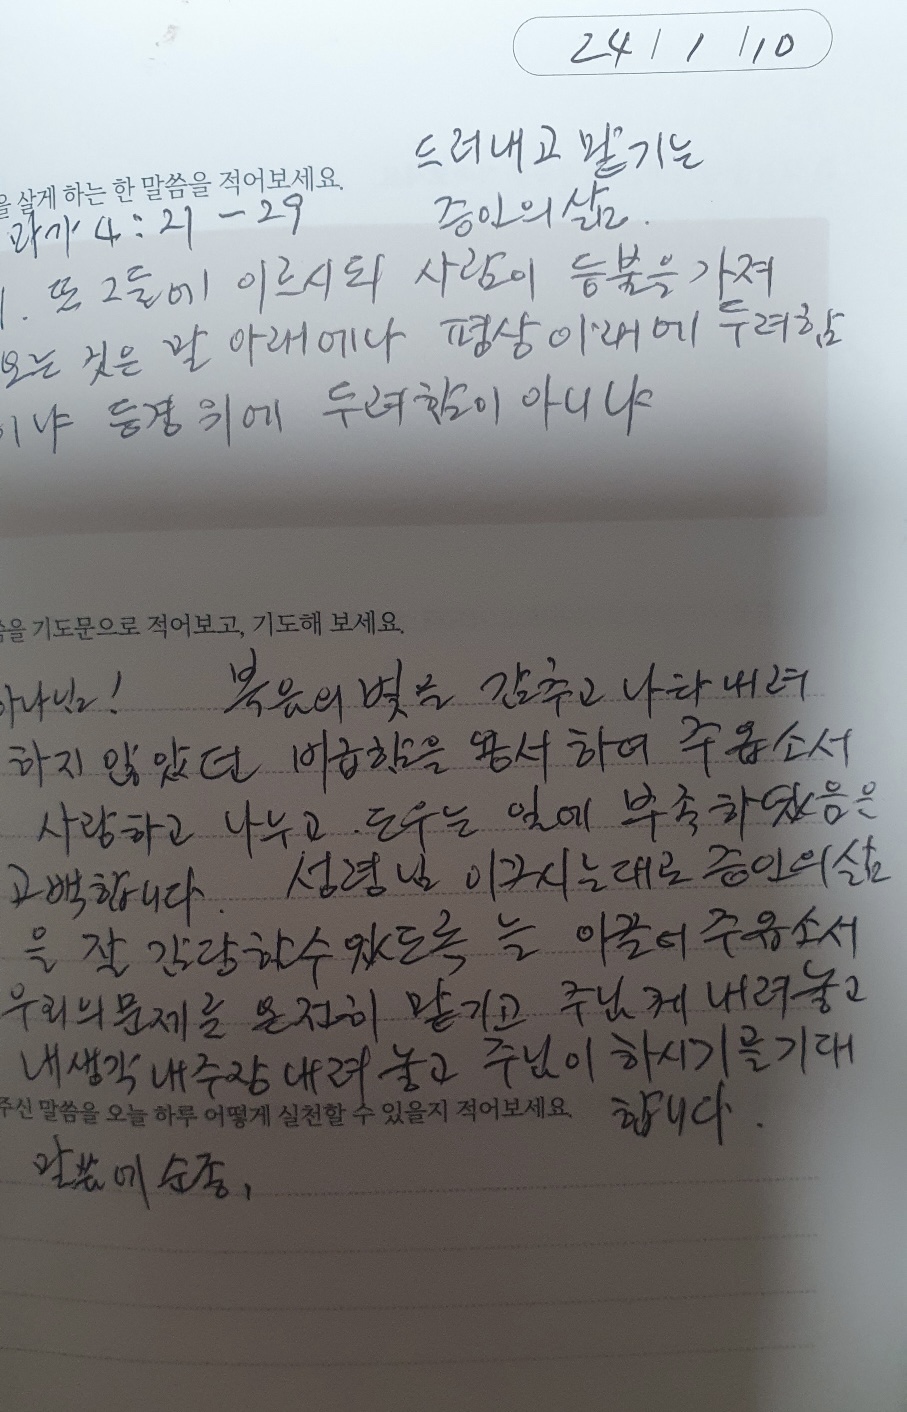 24 / 1 / 10
드러내고 맡기는
을 살게 하는 한 말씀을 적어보세요.
증인의 삶.
마가 4:21-29
1. 또 그들에 이르시되 사람이 등불을 가져
오는 것은 말 아래에나 평상 아래에 두려함
이냐 등경 위에 두려함이 아니냐
씀을 기도문으로 적어보고, 기도해 보세요.
하나님! 복음의 빛을 감추고 나타내려
하지 않았던 비겁함을 용서하여 주옵소서
사랑하고 나누고 도우는 일에 부족하였음은
고백합니다. 성령님 이끄시는대로 증인의 삶
을 잘 감당할수 있도록 늘 이끌어 주옵소서
우리의 문제를 온전히 맡기고 주님께 내려놓고
내생각 내주장 내려 놓고 주님이 하시기를 기대
주신 말씀을 오늘 하루 어떻게 실천할 수 있을지 적어보세요. 합니다.
말씀에 순종,